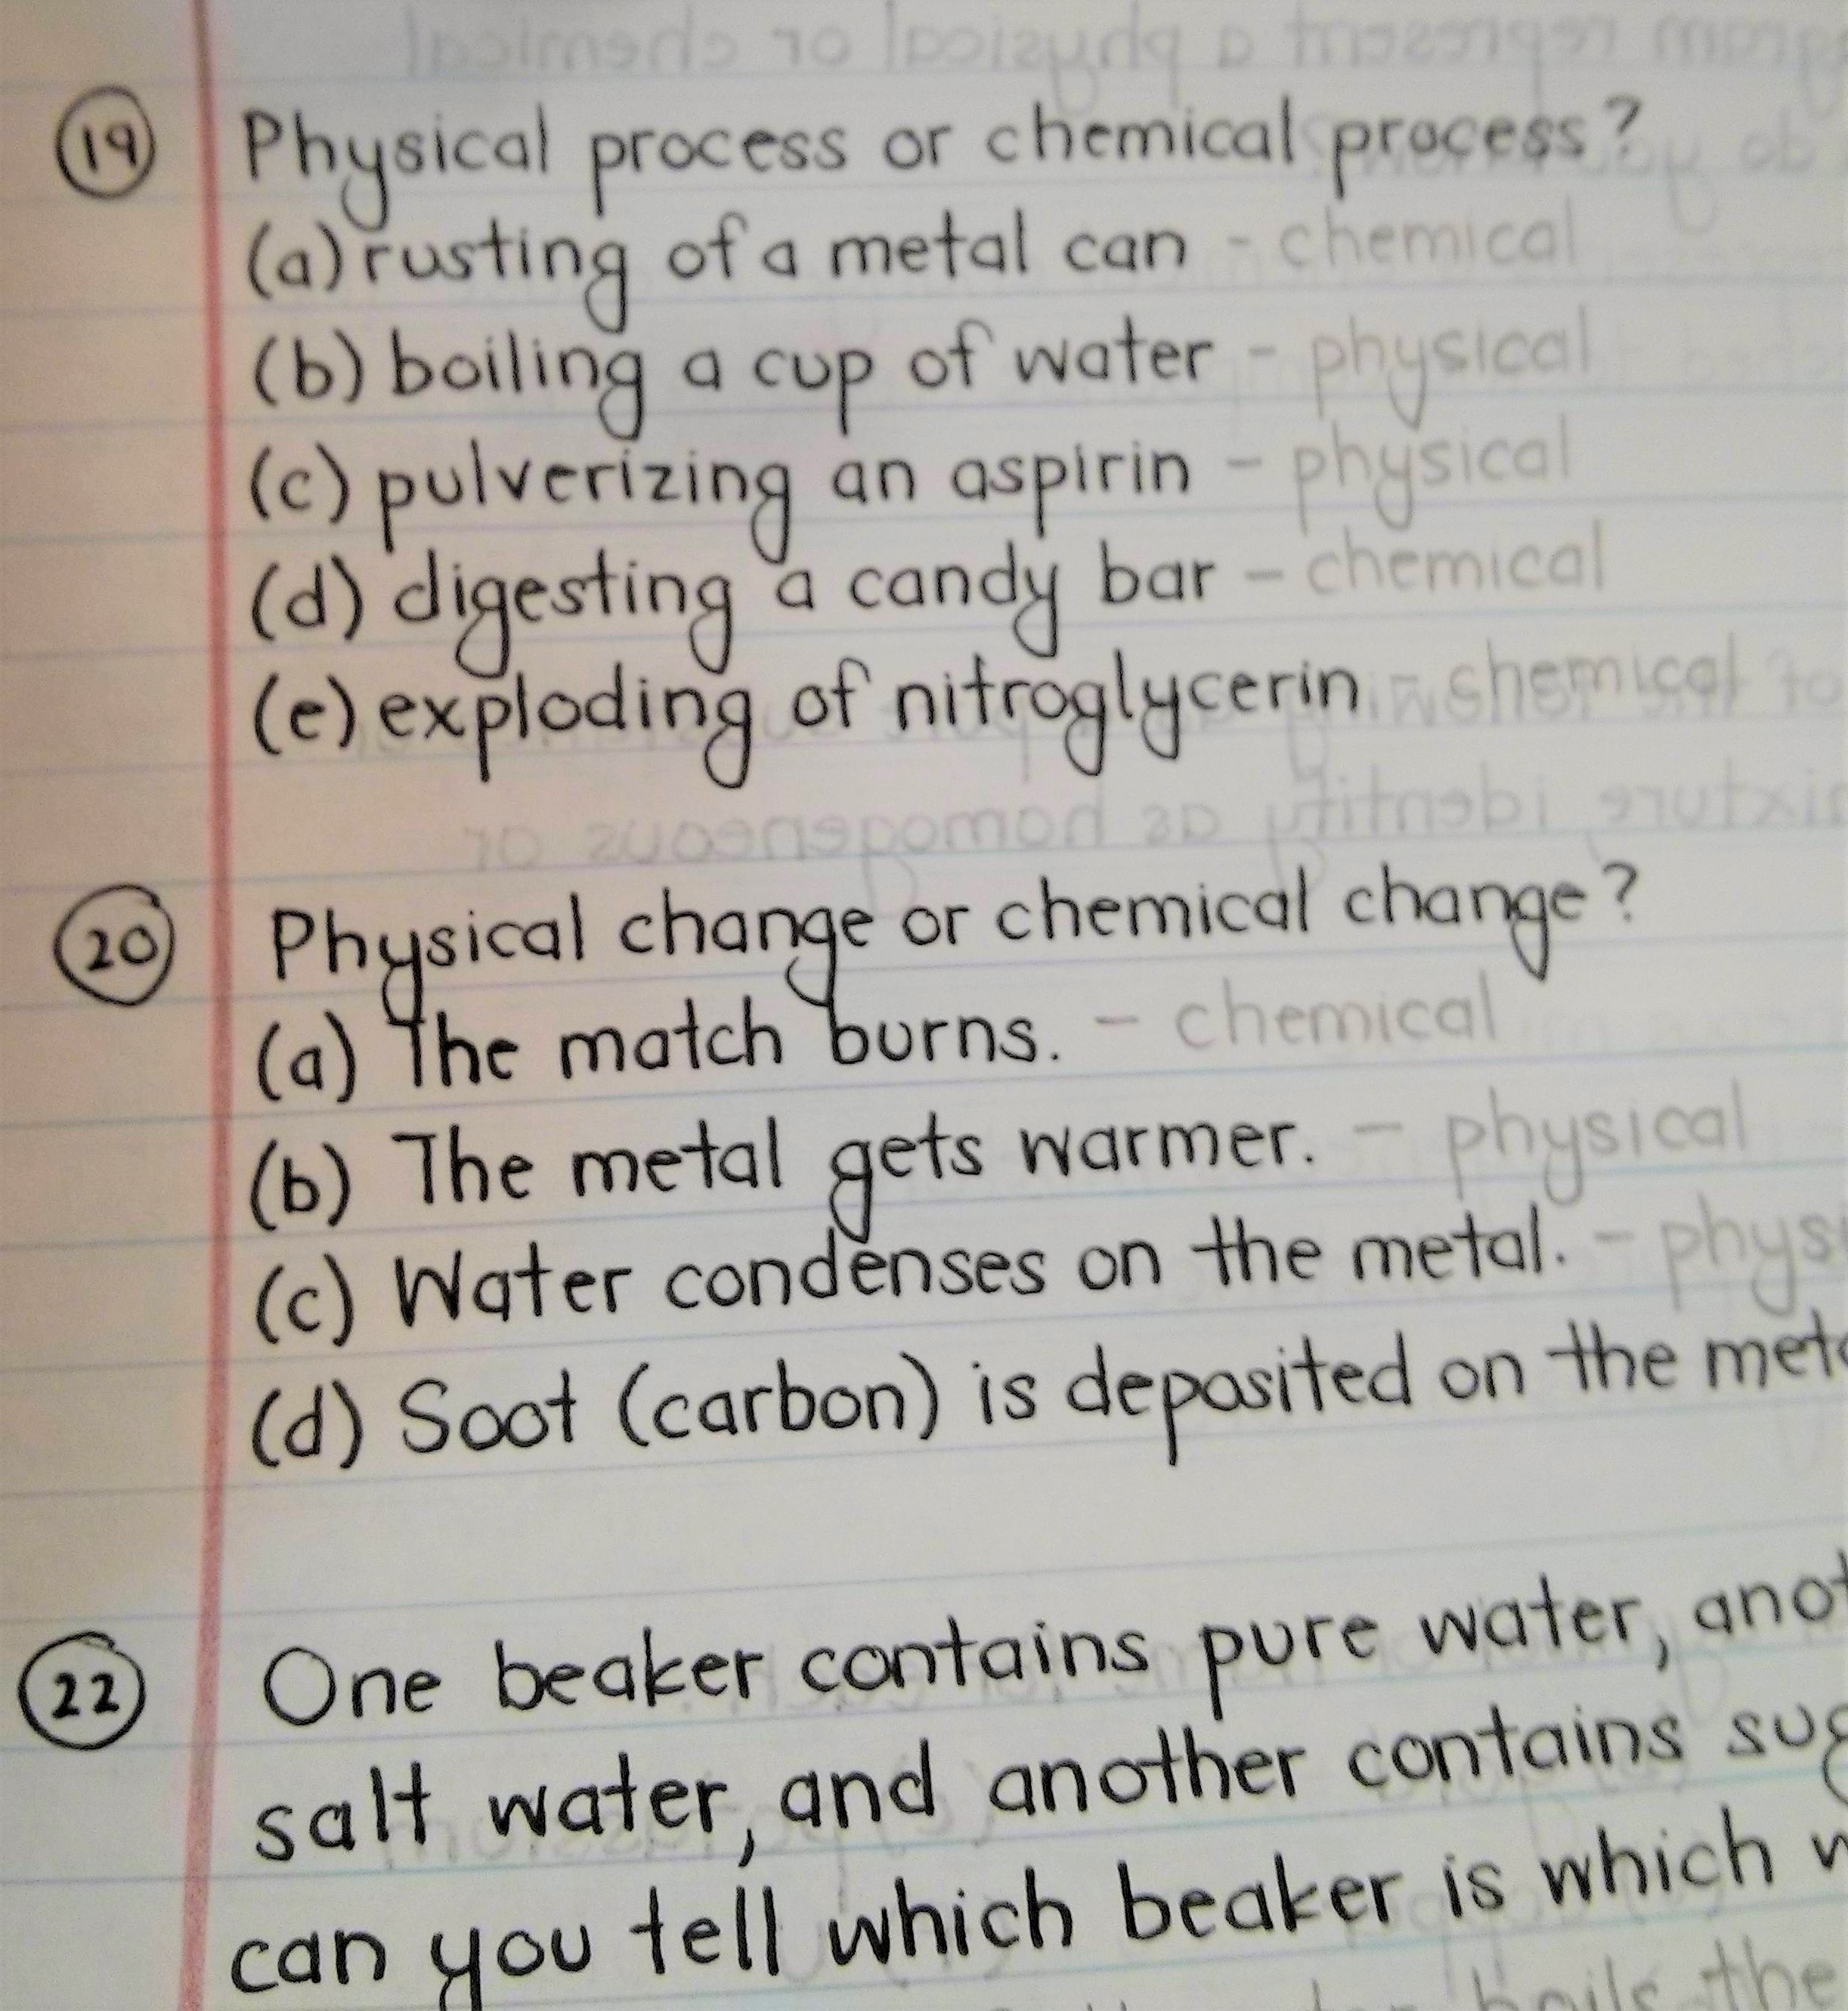 19 Physical process or chemical process?
(a) rusting of a metal can - chemical
(b) boiling a cup of water - physical
(c) pulverizing an aspirin - physical
(d) digesting a candy bar - chemical
(e) exploding of nitroglycerin - chemical
20 Physical change or chemical change?
(a) The match burns. - chemical
(b) The metal gets warmer. - physical
(c) Water condenses on the metal. - physi
(d) Soot (carbon) is deposited on the meta
22 One beaker contains pure water, anot
salt water, and another contains sug
can you tell which beaker is which w
boils the